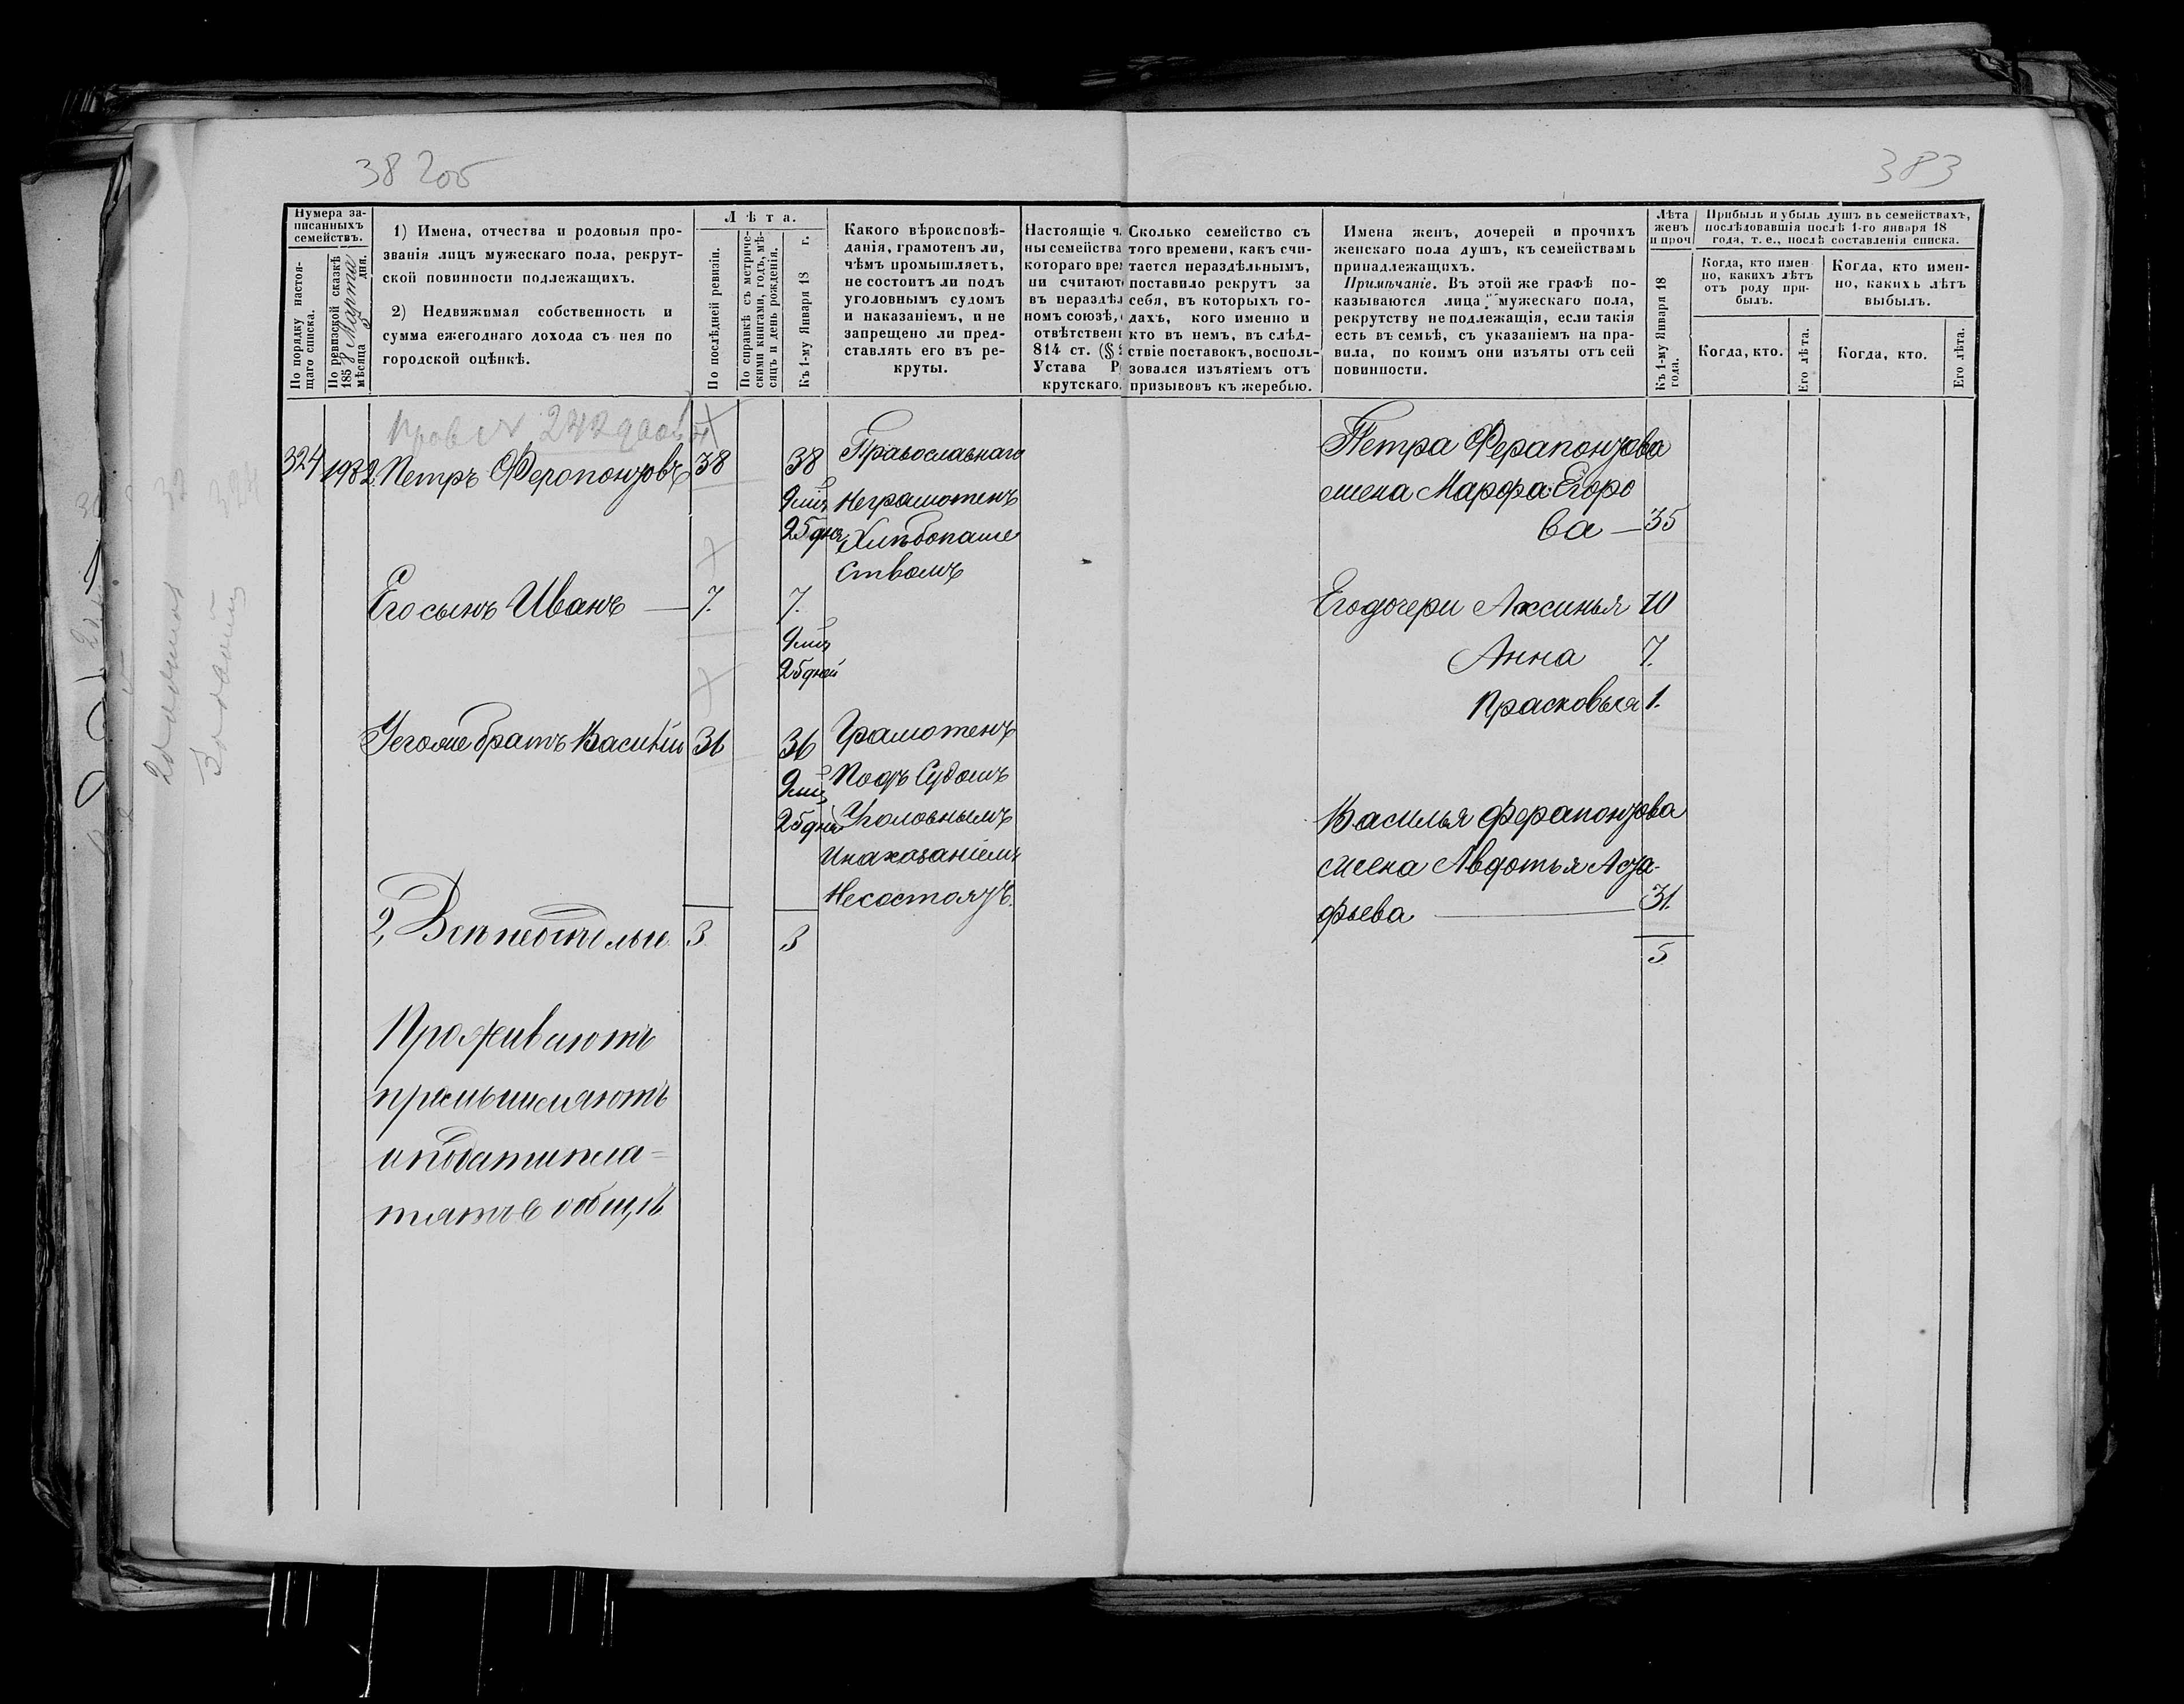 382об
383
Нумера за-
писанныхъ
семействъ.
По порядку настоя-
щаго списка.
По ревизской сказкѣ
1858 Марта
мѣсяца 5 дня.
1) Имена, отчества и родовыя про-
званія лицъ мужескаго пола, рекрут-
ской повинности подлежащихъ.
2) Недвижимая собственность и
сумма ежегоднаго дохода съ нея по
городской оцѣнкѣ.
Лѣта.
По послѣдней ревизіи.
По справкѣ съ метриче-
скими книгами, годъ, мѣ-
сяцъ и день рожденія.
Къ 1-му Января 18 г.
Какого вѣроисповѣ-
данія, грамотенъ ли,
чѣмъ промышляетъ,
не состоитъ ли подъ
уголовнымъ судомъ
и наказаніемъ, и не
запрещено ли пред-
ставлять его въ ре-
круты.
Настоящіе ч
ны семейства
котораго вре
ни считают
въ нераздѣл
номъ союзѣ,
отвѣтствен
814 ст. (§
Устава Р
крутскаго.
Сколько семейство съ
того времени, какъ счи-
тается нераздѣльнымъ,
поставило рекрутъ за
себя, въ которыхъ го-
дахъ, кого именно и
кто въ немъ, въ слѣд-
ствіе поставокъ, восполь-
зовался изъятіемъ отъ
призывовъ къ жеребью.
Имена женъ, дочерей и прочихъ
женскаго пола душъ, къ семействамъ
принадлежащихъ.
Примѣчаніе. Въ этой же графѣ по-
казываются лица мужескаго пола,
рекрутству не подлежащія, если такія
есть въ семьѣ, съ указаніемъ на пра-
вила, по коимъ они изъяты отъ сей
повинности.
Лѣта
женъ
и проч
Къ 1-му Января 18
года.
Прибыль и убыль душъ въ семействахъ,
послѣдовавшія послѣ 1-го января 18
года, т. е., послѣ составленія списка.
Когда, кто имен
но, какихъ лѣтъ
отъ роду при-
былъ.
Когда, кто имен-
но, какихъ лѣтъ
выбылъ.
Когда, кто.
Его лѣта.
Когда, кто.
Его лѣта.
324 1982 Петръ Феропонтовъ 38 38 Православнаго
9 мц Неграмотенъ
25 дня Хлѣбопаше
ствомъ
Его сынъ Иванъ — 7. 7.
9 мц
25 дней
У его же братъ Василій 36 36 Грамотенъ
9 мц Подъ Судомъ
25 дня Уголовнымъ
И наказаніемъ
Не состоятъ.
2, Всѣ неотдѣльн 3 3
Проживаютъ
промышляютъ
и подати пла=
тятъ вобщѣ
Петра Ферапонтова
жена Марфа Егоро
ва — 35
Его дочери Аксинья 10
Анна 7.
Прасковья 1.
Василья Ферапонтова
жена Авдотья Ага-
фьева — 31.
5